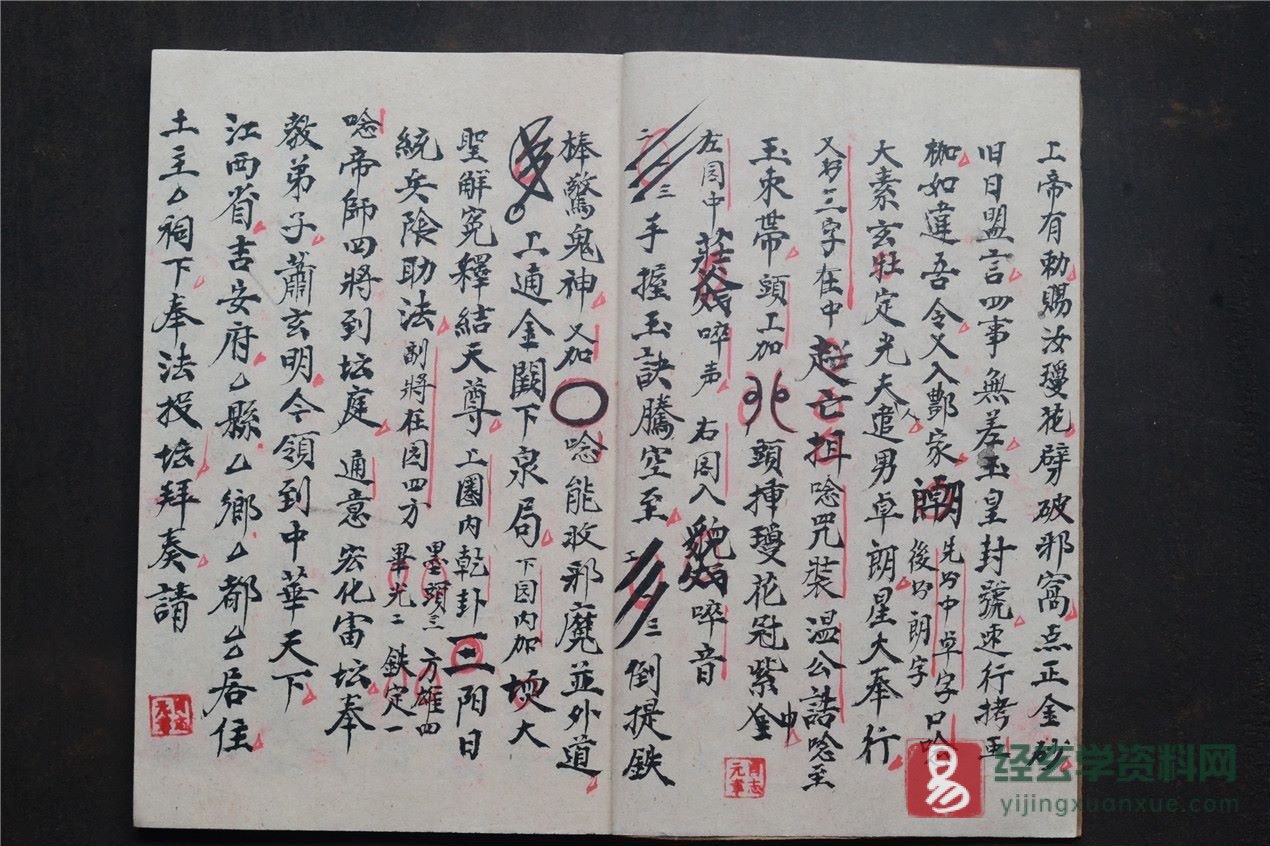 上帝有勅賜汝瓊花劈破邪窩点正金砂
旧日盟言四事無差玉皇封號速行拷
枷如違吾令又入酆家 先书中卓字口唸 後书朗字
大素玄壮定光夫追男卓朗星大奉行
又书三字在中 唸咒裝温公誥唸至
玉束帶頭上加 頭揷瓊花冠紫金
左图中 啐声 右图入 啐音
二一三手握玉訣騰空至 三倒提鉄
棒驚鬼神又加〇唸能收邪魔並外道
上通金闕下泉局下図内加 大
聖解冤釋結天尊上圈内乾卦三阳日
統兵陰助法副將在図四方 墨頭三 方雄四 畢光二 鉄定一
唸帝師四將到坛庭通意宏化雷坛奉
教弟子蕭玄明今領到中華天下
江西省吉安府厶縣厶鄉厶都厶居住
土主厶祠下奉法投坛拜奏請
易
经玄学资料网
yijingxuanxue.com